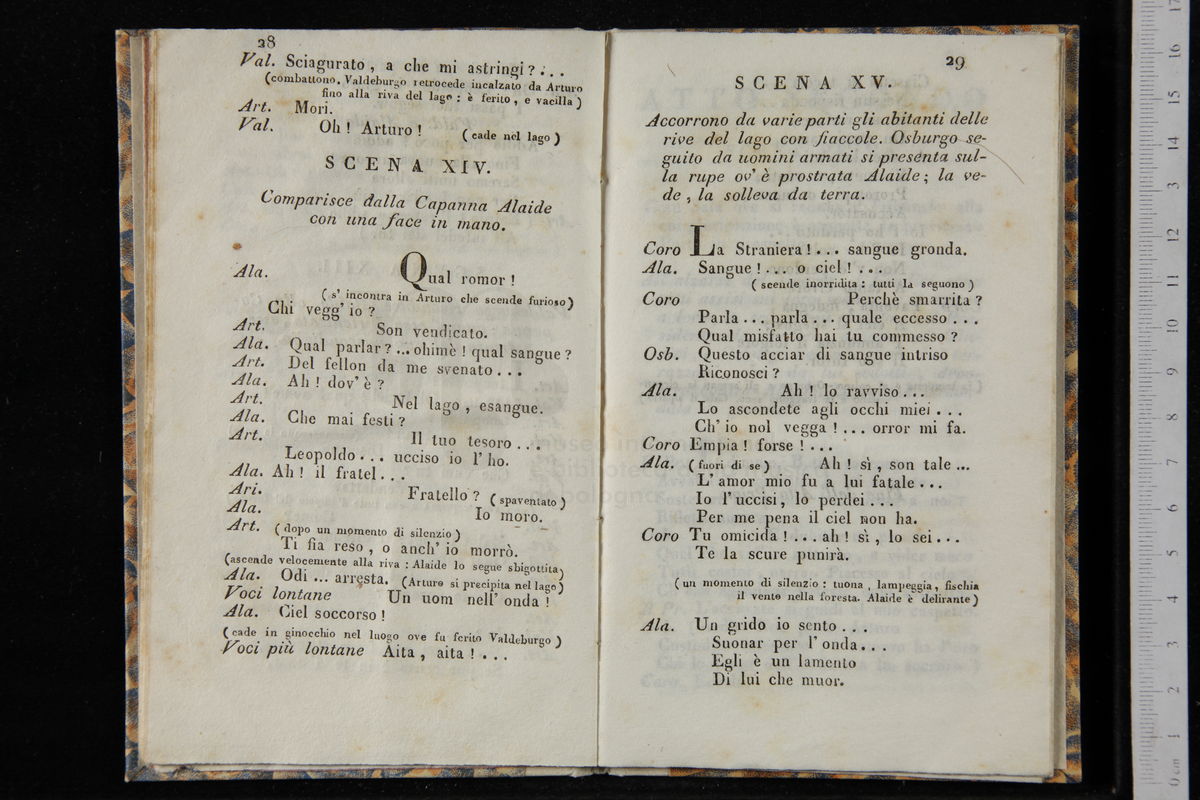 28
Val. Sciagurato, a che mi astringi?...
(combattono. Valdeburgo retrocede incalzato da Arturo
fino alla riva del lago: è ferito, e vacilla)
Art. Mori.
Val. Oh! Arturo! (cade nel lago)
SCENA XIV.
Comparisce dalla Capanna Alaide
con una face in mano.
Ala. Qual romor!
(s' incontra in Arturo che scende furioso)
Chi vegg' io?
Art. Son vendicato.
Ala. Qual parlar?... ohimè! qual sangue?
Art. Del fellon da me svenato...
Ala. Ah! dov' è?
Art. Nel lago, esangue.
Ala. Che mai festi?
Art. Il tuo tesoro...
Leopoldo... ucciso io l' ho.
Ala. Ah! il fratel...
Ari. Fratello? (spaventato)
Ala. Io moro.
Art. (dopo un momento di silenzio)
Ti fia reso, o anch' io morrò.
(ascende velocemente alla riva: Alaide lo segue sbigottita)
Ala. Odi... arresta. (Arturo si precipita nel lago)
Voci lontane Un uom nell' onda!
Ala. Ciel soccorso!
(cade in ginocchio nel luogo ove fu ferito Valdeburgo)
Voci più lontane Aita, aita!...
29
SCENA XV.
Accorrono da varie parti gli abitanti delle
rive del lago con fiaccole. Osburgo se-
guito da uomini armati si presenta sul-
la rupe ov' è prostrata Alaide; la ve-
de, la solleva da terra.
Coro La Straniera!... sangue gronda.
Ala. Sangue!... o ciel!...
(scende inorridita: tutti la seguono)
Coro Perchè smarrita?
Parla... parla... quale eccesso...
Qual misfatto hai tu commesso?
Osb. Questo acciar di sangue intriso
Riconosci?
Ala. Ah! lo ravviso...
Lo ascondete agli occhi miei...
Ch' io nol vegga!... orror mi fa.
Coro Empia! forse!...
Ala. (fuori di se) Ah! sì, son tale...
L' amor mio fu a lui fatale...
Io l' uccisi, lo perdei...
Per me pena il ciel non ha.
Coro Tu omicida!... ah! sì, lo sei...
Te la scure punirà.
(un momento di silenzio: tuona, lampeggia, fischia
il vento nella foresta. Alaide è delirante)
Ala. Un grido io sento...
Suonar per l' onda...
Egli è un lamento
Di lui che muor.
0 cm 1 2 3 4 5 6 7 8 9 10 11 12 13 14 15 16 17